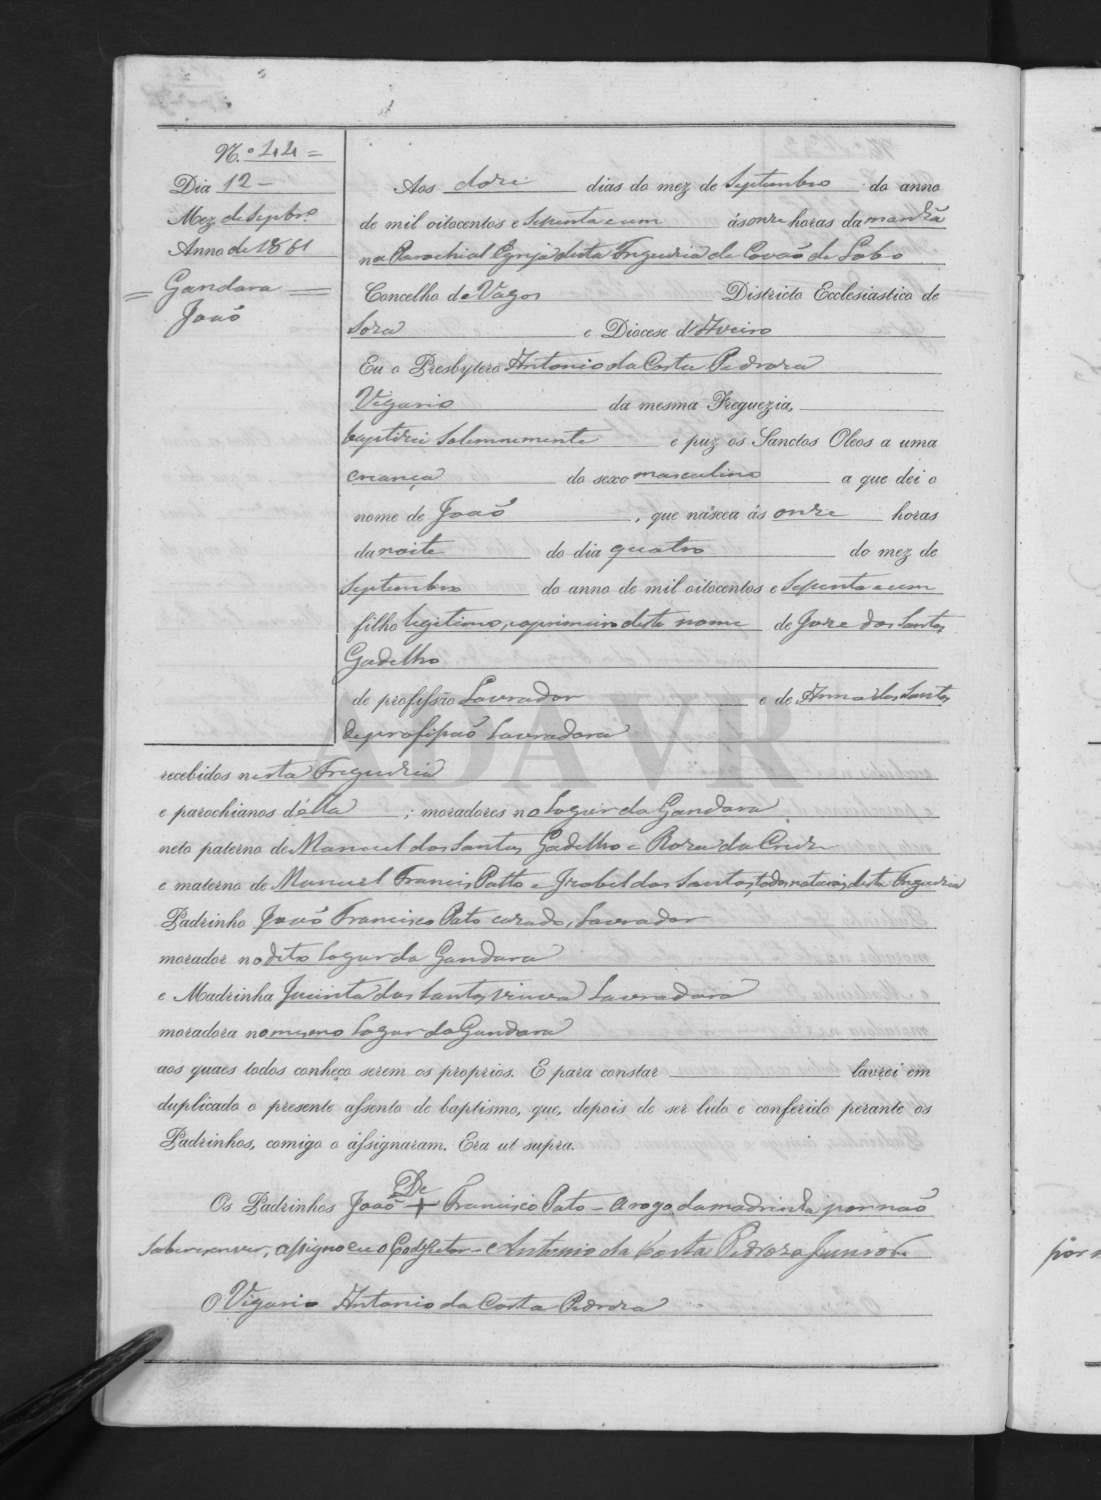 N.º 44 =
Dia 12 -
Mez de Sepbrº
Anno de 1861
= Gandara =
João
Aos doze dias do mez de Septembro do anno
de mil oitocentos e Sesenta e um ás onze horas da manhã
na Parochial Egreja desta Freguezia de Covão de Lobo
Concelho de Vagos Districto Ecclesiastico de
Soza e Diocese d'Aveiro
Eu o Presbytero Antonio da Costa Pedroza
Vigario da mesma Freguezia,
baptizei Solemnemente e puz os Sanctos Oleos a uma
criança do sexo masculino a que dei o
nome de João, que nasceu ás onze horas
da noite do dia quatro do mez de
Septembro do anno de mil oitocentos e Sesenta e um
filho legitimo, e o primeiro deste nome de Joze dos Santos
Gadelho
de profissão Lavrador e de Anna dos Santos
de profissaõ Lavradora
recebidos nesta Freguezia
e parochianos d'ella; moradores no Logar da Gandara
neto paterno de Manoel dos Santos Gadelho e Roza da Cruz
e materno de Manuel Francis Patto e Izabel dos Santos, todos naturais desta Freguezia
Padrinho João Francisco Pato cazado, Lavrador
morador no dito Logar da Gandara
e Madrinha Jacinta dos Santos, viuva Lavradora
moradora no mesmo Logar da Gandara
aos quaes todos conheço serem os proprios. E para constar lavrei em
duplicado o presente assento de baptismo, que, depois de ser lido e conferido perante os
Padrinhos, comigo o assignaram. Era ut supra.
De
Os Padrinhos João + Francisco Pato - A rogo da madrinha por não
saber escrever, assigno eu o Antonio da Costa Pedroza Junior.
O Vigario Antonio da Costa Pedroza
ADAVR